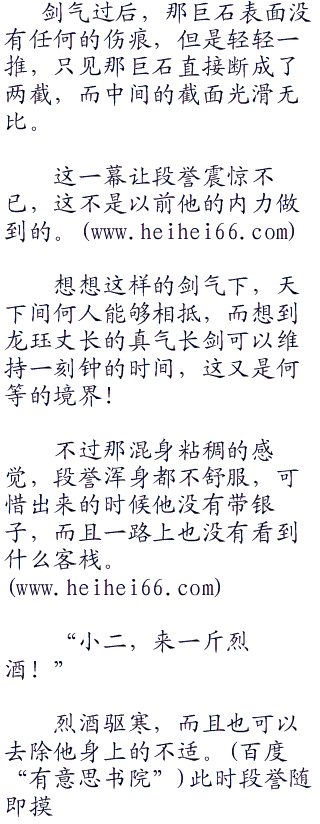 剑气过后，那巨石表面没
有任何的伤痕，但是轻轻一
推，只见那巨石直接断成了
两截，而中间的截面光滑无
比。
这一幕让段誉震惊不
已，这不是以前他的内力做
到的。(www.heihei66.com)
想想这样的剑气下，天
下间何人能够相抵，而想到
龙珏丈长的真气长剑可以维
持一刻钟的时间，这又是何
等的境界！
不过那混身粘稠的感
觉，段誉浑身都不舒服，可
惜出来的时候他没有带银
子，而且一路上也没有看到
什么客栈。
(www.heihei66.com)
“小二，来一斤烈
酒！”
烈酒驱寒，而且也可以
去除他身上的不适。(百度
“有意思书院”)此时段誉随
即摸